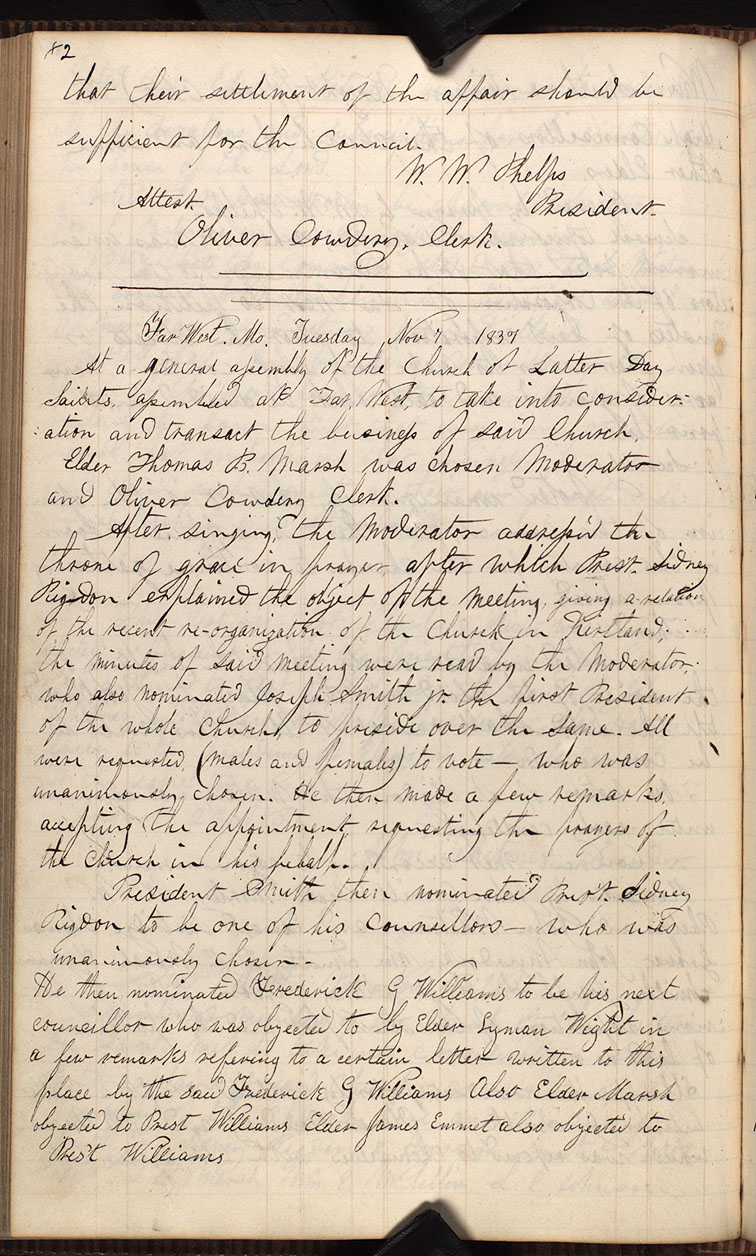 82
that their settlement of the affair should be
sufficient for the Council.
W. W. Phelps
President.
Attest.
Oliver Cowdery, Clerk.
Far West, Mo. Tuesday Nov 7 1837
At a general assembly of the Church of Latter Day
Saints, assembled at Far, West, to take into consider-
:ation and transact the business of said Church,
Elder Thomas B. Marsh was chosen Moderator
and Oliver Cowdery Clerk.
After, singing, the Moderator address'd the
throne of grace in prayer, after which Prest. Sidney
Rigdon explained the object of the meeting, giving a relation
of the recent re-organization of the Church in Kirtland;
the minutes of said meeting were read by the Moderator,
who also nominated Joseph Smith jr. the first President
of the whole Church, to preside over the same. All
were requested (males and females) to vote — who was
unanimously chosen. He then made a few remarks,
accepting the appointment, requesting the prayers of
the Church in his behalf.
President Smith then nominated Pres't. Sidney
Rigdon to be one of his counsellors — who was
unanimously chosen —
He then nominated Frederick G Williams to be his next
councillor who was objected to by Elder Lyman Wight in
a few remarks refering to a certain letter written to this
place by the said Frederick G Williams Also Elder Marsh
objected to Prest Williams Elder James Emmet also objected to
Pres't Williams